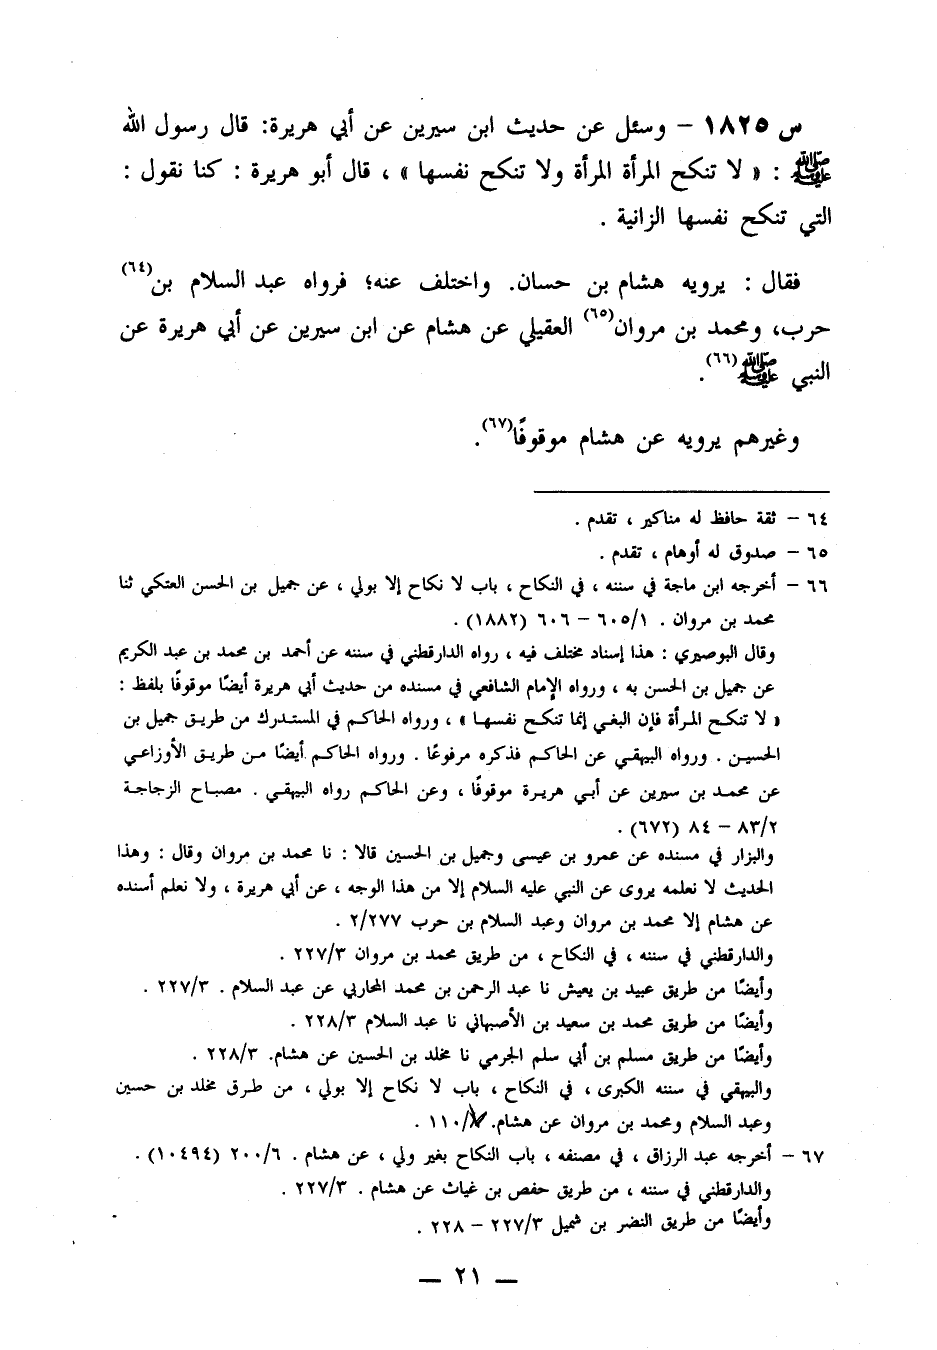 س ١٨٢٥ – وسئل عن حديث ابن سيرين عن أبي هريرة: قال رسول الله
ﷺ : « لا تنكح المرأة المرأة ولا تنكح نفسها » ، قال أبو هريرة : كنا نقول :
التي تنكح نفسها الزانية .
فقال : يرويه هشام بن حسان. واختلف عنه؛ فرواه عبد السلام بن(٦٤)
حرب، ومحمد بن مروان(٦٥) العقيلي عن هشام عن ابن سيرين عن أبي هريرة عن
النبي ﷺ(٦٦).
وغيرهم يرويه عن هشام موقوفًا(٦٧).
٦٤ – ثقة حافظ له مناكير ، تقدم .
٦٥ – صدوق له أوهام ، تقدم .
٦٦ – أخرجه ابن ماجة في سننه ، في النكاح ، باب لا نكاح إلا بولي ، عن جميل بن الحسن العتكي ثنا
محمد بن مروان . ٦٠٥/١ – ٦٠٦ (١٨٨٢) .
وقال البوصيري : هذا إسناد مختلف فيه ، رواه الدارقطني في سننه عن أحمد بن محمد بن عبد الكريم
عن جميل بن الحسن به ، ورواه الإمام الشافعي في مسنده من حديث أبي هريرة أيضًا موقوفًا بلفظ :
« لا تنكح المرأة فإن البغي إنما تنكح نفسها » ، ورواه الحاكم في المستدرك من طريق جميل بن
الحسين . ورواه البيهقي عن الحاكم فذكره مرفوعًا . ورواه الحاكم أيضًا من طريق الأوزاعي
عن محمد بن سيرين عن أبي هريرة موقوفًا ، وعن الحاكم رواه البيهقي . مصباح الزجاجة
٨٣/٢ – ٨٤ (٦٧٢) .
والبزار في مسنده عن عمرو بن عيسى وجميل بن الحسين قالا : نا محمد بن مروان وقال : وهذا
الحديث لا نعلمه يروى عن النبي عليه السلام إلا من هذا الوجه ، عن أبي هريرة ، ولا نعلم أسنده
عن هشام إلا محمد بن مروان وعبد السلام بن حرب ٢/٢٧٧ .
والدارقطني في سننه ، في النكاح ، من طريق محمد بن مروان ٢٢٧/٣ .
وأيضًا من طريق عبيد بن يعيش نا عبد الرحمن بن محمد المحاربي عن عبد السلام . ٢٢٧/٣ .
وأيضًا من طريق محمد بن سعيد بن الأصبهاني نا عبد السلام ٢٢٨/٣ .
وأيضًا من طريق مسلم بن أبي سلم الجرمي نا مخلد بن الحسين عن هشام. ٢٢٨/٣ .
والبيهقي في سننه الكبرى ، في النكاح ، باب لا نكاح إلا بولي ، من طرق مخلد بن حسين
وعبد السلام ومحمد بن مروان عن هشام. ١١٠/٧ .
٦٧ – أخرجه عبد الرزاق ، في مصنفه ، باب النكاح بغير ولي ، عن هشام . ٢٠٠/٦ (١٠٤٩٤) .
والدارقطني في سننه ، من طريق حفص بن غياث عن هشام . ٢٢٧/٣ .
وأيضًا من طريق النضر بن شميل ٢٢٧/٣ – ٢٢٨ .
— ٢١ —